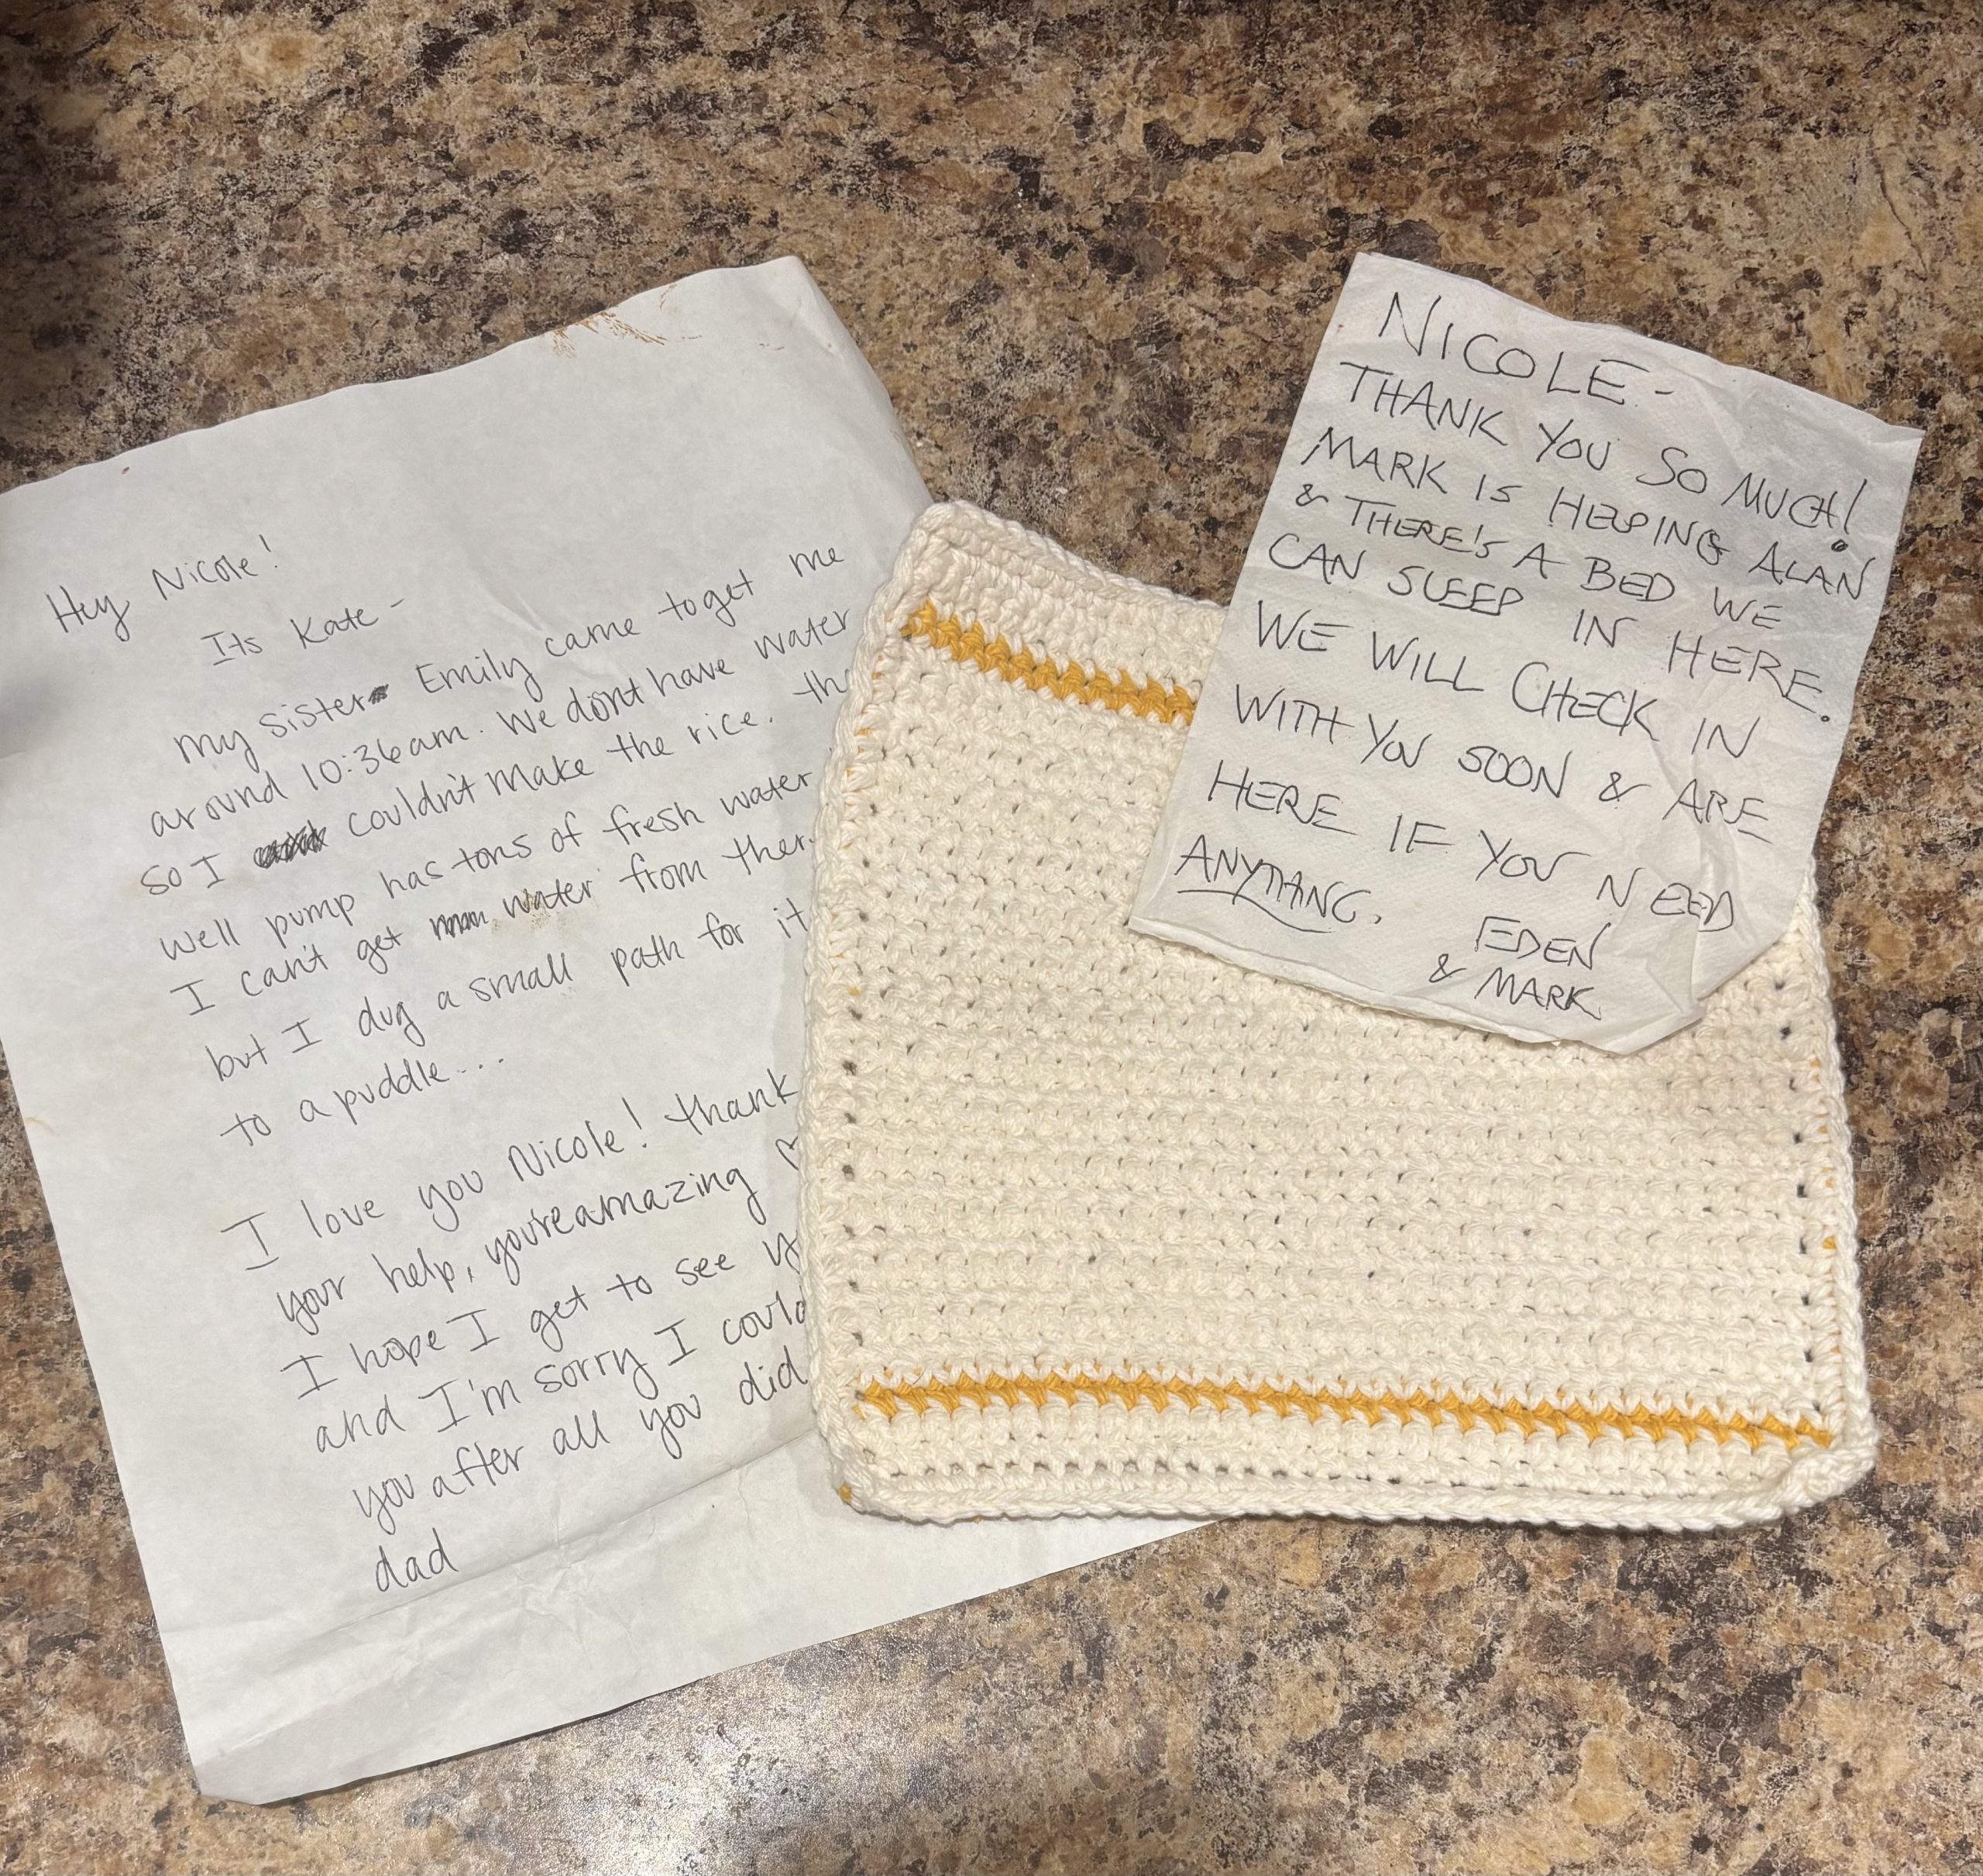 Hey Nicole!
Its Kate -
My sister Emily came to get me
around 10:36am. We don't have water
so I couldn't make the rice. the
well pump has tons of fresh water
I can't get water from ther
but I dug a small path for it
to a puddle...
I love you Nicole! thank
your help, you're amazing ♡
I hope I get to see
and I'm sorry I could
you after all you did
dad
NICOLE-
THANK YOU SO MUCH!
MARK IS HELPING ALAN
& THERE'S A BED WE
CAN SLEEP IN HERE.
WE WILL CHECK IN
WITH YOU SOON & ARE
HERE IF YOU NEED
ANYTHING.
EDEN
& MARK